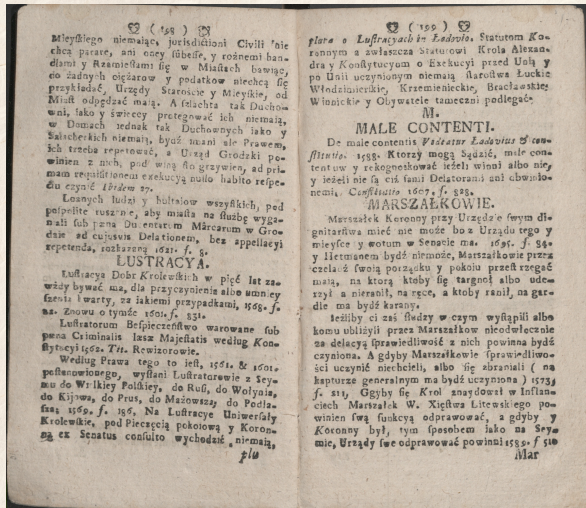 ( 198 )
Mieyskiego niemaiąc, jurisdictioni Civili nie
chcą parére, ani oney subesse, y rożnemi han-
dlami y Rzemiesłami się w Miastach bawiąc,
do żadnych ciężarow y podatkow niechcą się
przykładać, Urzędy Staroście y Mieyskie, od
Miast odpędzać maią. A szlachta tak Ducho-
wni, iako y świeccy protegować ich niemaią,
w Domach iednak tak Duchownych iako y
Szlacheckich niemaią, bydź miani ale Prawem,
ich trzeba repetować, a Urząd Grodzki po-
winien z nich, pod winą sto grzywien, ad pri-
mam requisitionem exekucyą nullo habito respe-
ctu czynić Ibidem 27.
Loznych ludzi y hultaiow wszystkich, pod
pospolite ruszenie, aby miasta na służbę wyga-
niali sub pæna Ducentarum Marcarum w Gro-
dzie ad cujusvis Delationem, bez appellacyi
repetenda, rozkazano 1621. f. 8.
LUSTRACYA.
Lustracya Dobr Krolewskich w pięć lat za-
wżdy bywać ma, dla przyczynienia albo umniey
szenia kwarty, za iakiemi przypadkami, 1568. f.
82. Znowu o tymże 1601. f. 831.
Lustratorum Bespieczeństwo warowane sub
pæna Criminalis læsæ Majestatis według Kon-
stytucyi 1562. Tit. Rewizorowie.
Według Prawa tego to iest, 1561. & 1601.
postanowionego, wysłani Lustratorowie z Sey-
mu do Wielkiey Polskiey, do Rusi, do Wołynia,
do Kijowa, do Prus, do Mażowsza, do Podla-
sza; 1569. f. 186. Na Lustracye Uniwersały
Krolewskie, pod Pieczęcią pokoiową y Koron-
ną ex Senatus consulto wychodzić niemaią,
plu
( 199 )
plura o Lustracyach in Ladovio. Statutom Ko-
ronnym a zwłaszcza Statutowi Krola Alexan-
dra y Konstytucyom o Exekucyi przed Unią y
po Unii uczynionym niemaią starostwa Łuckie
Włodzimierskie, Krzemienieckie, Bracławskie,
Winnickie y Obywatele tameczni podlegać.
M.
MALE CONTENTI.
De male contentis Videatur Ladovius & con-
stitutio. 1588. Ktorzy mogą Sądzić, male con-
tentuw y rekognoskować ieżeli winni albo nie,
y ieżeli nie są ciż sami Delatorami ani obwinio-
nemi, Constitutio 1607. f. 828.
MARSZAŁKOWIE.
Marszałek Koronny przy Urzędzie swym di-
gnitarstwa mieć nie może bo z Urzędu tego y
mieysce y wotum w Senacie ma. 1695. f. 84.
y Hetmanem bydź niemoże, Marszałkowie przez
czeladź swoię porządku y pokoiu przestrzegać
maią, na ktorą ktoby się targnoł albo ude-
rzył a nieranił, na ręce, a ktoby ranił, na gar-
dle ma bydź karany.
Jeżliby ci zaś słudzy w czym wystąpili albo
komu ubliżyli przez Marszałkow nieodwłocznie
za delacyą sprawiedliwość z nich powinna bydź
czyniona. A gdyby Marszałkowie sprawiedliwo-
ści uczynić niechcieli, albo się abraniali ( na
kapturze generalnym ma bydź uczyniona ) 1573.
f. 211, Ggyby się Krol znaydował w Inflan-
ciech Marszałek W. Xięstwa Litewskiego po-
winien swą funkcyą odprawować, a gdyby y
Koronny był, tym sposobem iako na Sey-
mie, Urządy swe odprawować powinni 1589. f 510
Mar